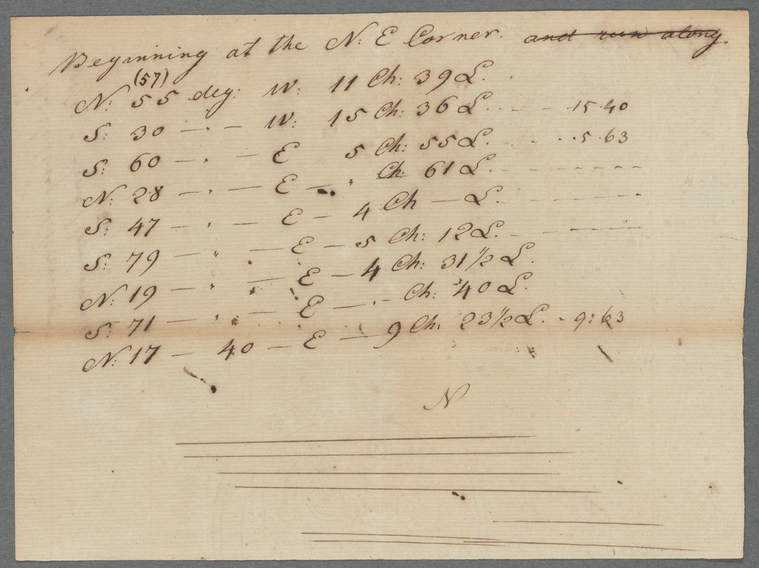 Beginning at the N: E Corner. and run along.
(57)
N: 55 deg: W: 11 Ch: 39 L.
S: 30 — · — W: 15 Ch: 36 L. - - - 15.40
S: 60 — · — E 5 Ch: 55 L. - - - 5.63
N: 28 — · — E — · Ch 61 L. - - - - - -
S: 47 — · — E — 4 Ch — L. - - - - - -
S: 79 — " — E — 5 Ch: 12 L. - - - - - -
N: 19 — " — E — 4 Ch: 31 1/2 L.
S: 71 — " — E — · - Ch: 40 L.
N: 17 — 40 — E — 9 Ch: 23 1/2 L. - 9:63
N